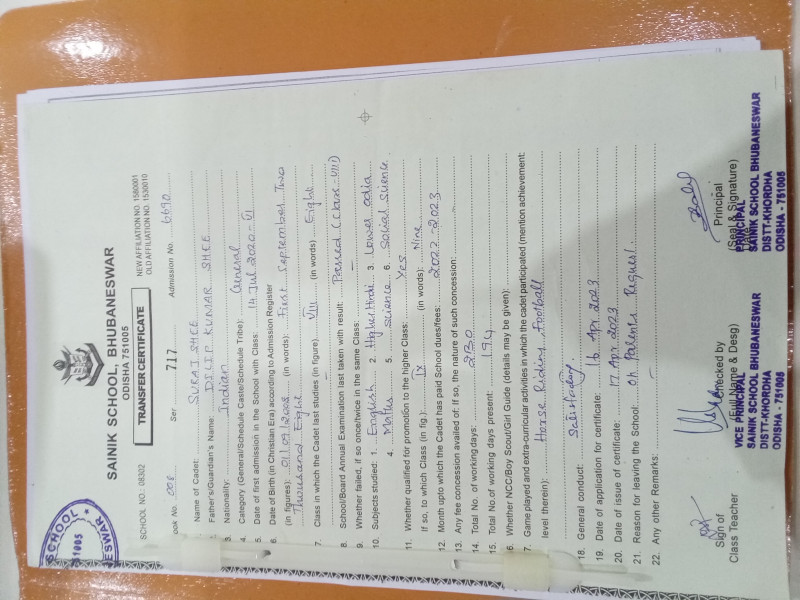 SAINIK SCHOOL, BHUBANESWAR
ODISHA 751005
SCHOOL NO.- 08302
TRANSFER CERTIFICATE
NEW AFFILIATION NO. 1580001
OLD AFFILIATION NO. 1530010
ook No. 008 Ser 717 Admission No. 6690
Name of Cadet: SURAJ SHEE
Father's/Guardian's Name: DILIP KUMAR SHEE
3. Nationality: Indian
4. Category (General/Schedule Caste/Schedule Tribe): General
5. Date of first admission in the School with Class: 14 Jul 2020 - VI
6. Date of Birth (in Christian Era) according to Admission Register
(in figures): 01.09.2008 (in words): First September Two
Thousand Eight
7. Class in which the Cadet last studies (in figure). VIII (in words) Eight
8. School/Board Annual Examination last taken with result: Passed (Class-VIII)
9. Whether failed, if so once/twice in the same Class: —
10. Subjects studied: 1. English 2. Higher Hindi 3. Lower Odia
4. Maths 5. Science 6. Social Science
11. Whether qualified for promotion to the higher Class: Yes
If so, to which Class (in fig.) IX (in words): Nine
12. Month upto which the Cadet has paid School dues/fees: 2022-2023
13. Any fee concession availed of: If so, the nature of such concession:
14. Total No. of working days: 230
15. Total No. of working days present: 194
6. Whether NCC/Boy Scout/Girl Guide (details may be given):
7. Game played and extra-curricular activities in which the cadet participated (mention achievement:
level therein): Horse Riding, Football
18. General conduct: Satisfactory
19. Date of application for certificate: 16 Apr 2023
20. Date of issue of certificate: 17 Apr 2023
21. Reason for leaving the School: On Parents Request
22. Any other Remarks: —
Sign of
Class Teacher
Checked by
(Full Name & Desg)
VICE PRINCIPAL
SAINIK SCHOOL BHUBANESWAR
DISTT-KHORDHA
ODISHA - 751005
Principal
(Seal & Signature)
PRINCIPAL
SAINIK SCHOOL, BHUBANESWAR
DISTT-KHORDHA
ODISHA - 751005
SCHOOL
51005
ESWAR